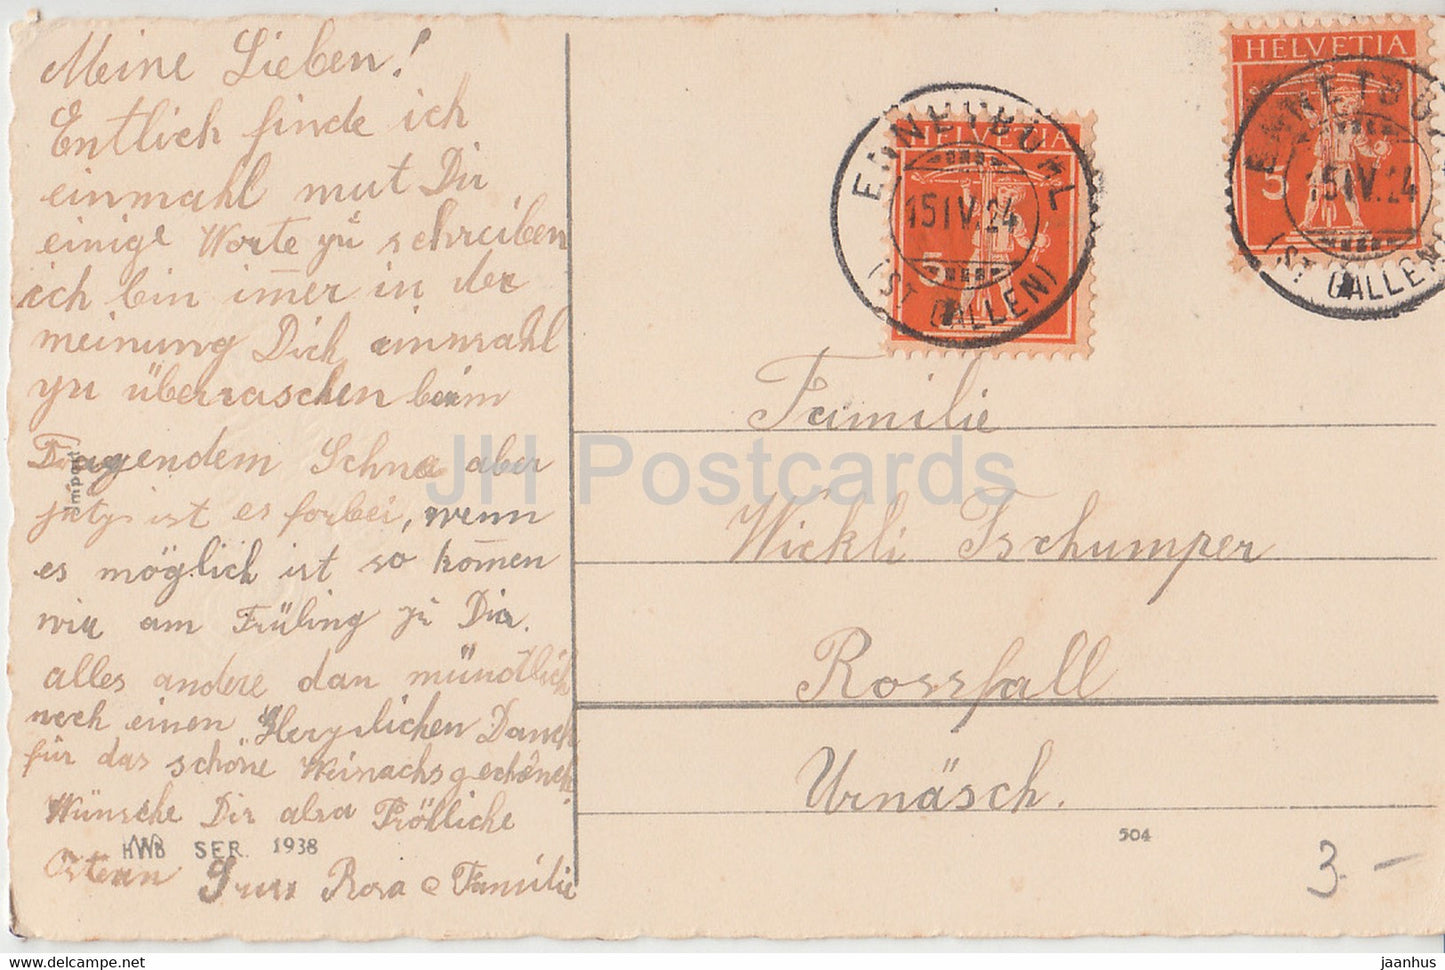 Meine Lieben!
Entlich finde ich
einmahl mut Dir
einige Worte zu schreiben
ich bin im̄er in der
meinung Dich einmahl
zu überraschen beim
Tragendem Schne aber
jetz ist es forbei, wenn
es möglich ist so kom̄en
wir am Früling zu Dir.
alles andere dan mündtlich
noch einen Herzlichen Danck
für das schöne Weinachsgeschenck
Wünsche Dir also Fröhliche
Ostern Gruss Rosa & Familie
Import
KWB SER. 1938
HELVETIA
5
ENNETBÜHL
15 IV. 24
(ST. GALLEN)
HELVETIA
5
ENNETBÜ
15 IV. 24
(ST. GALLEN)
Familie
Wickli Tschumper
Rossfall
Urnäsch.
504
3.-
JH Postcards
www.delcampe.net
jaanhus